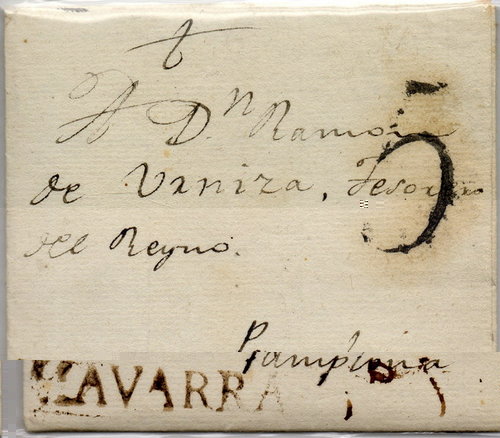 A Dⁿ Ramon
de Vaniza, Tesorero
del Reyno.
5
Pamplona
NAVARRA